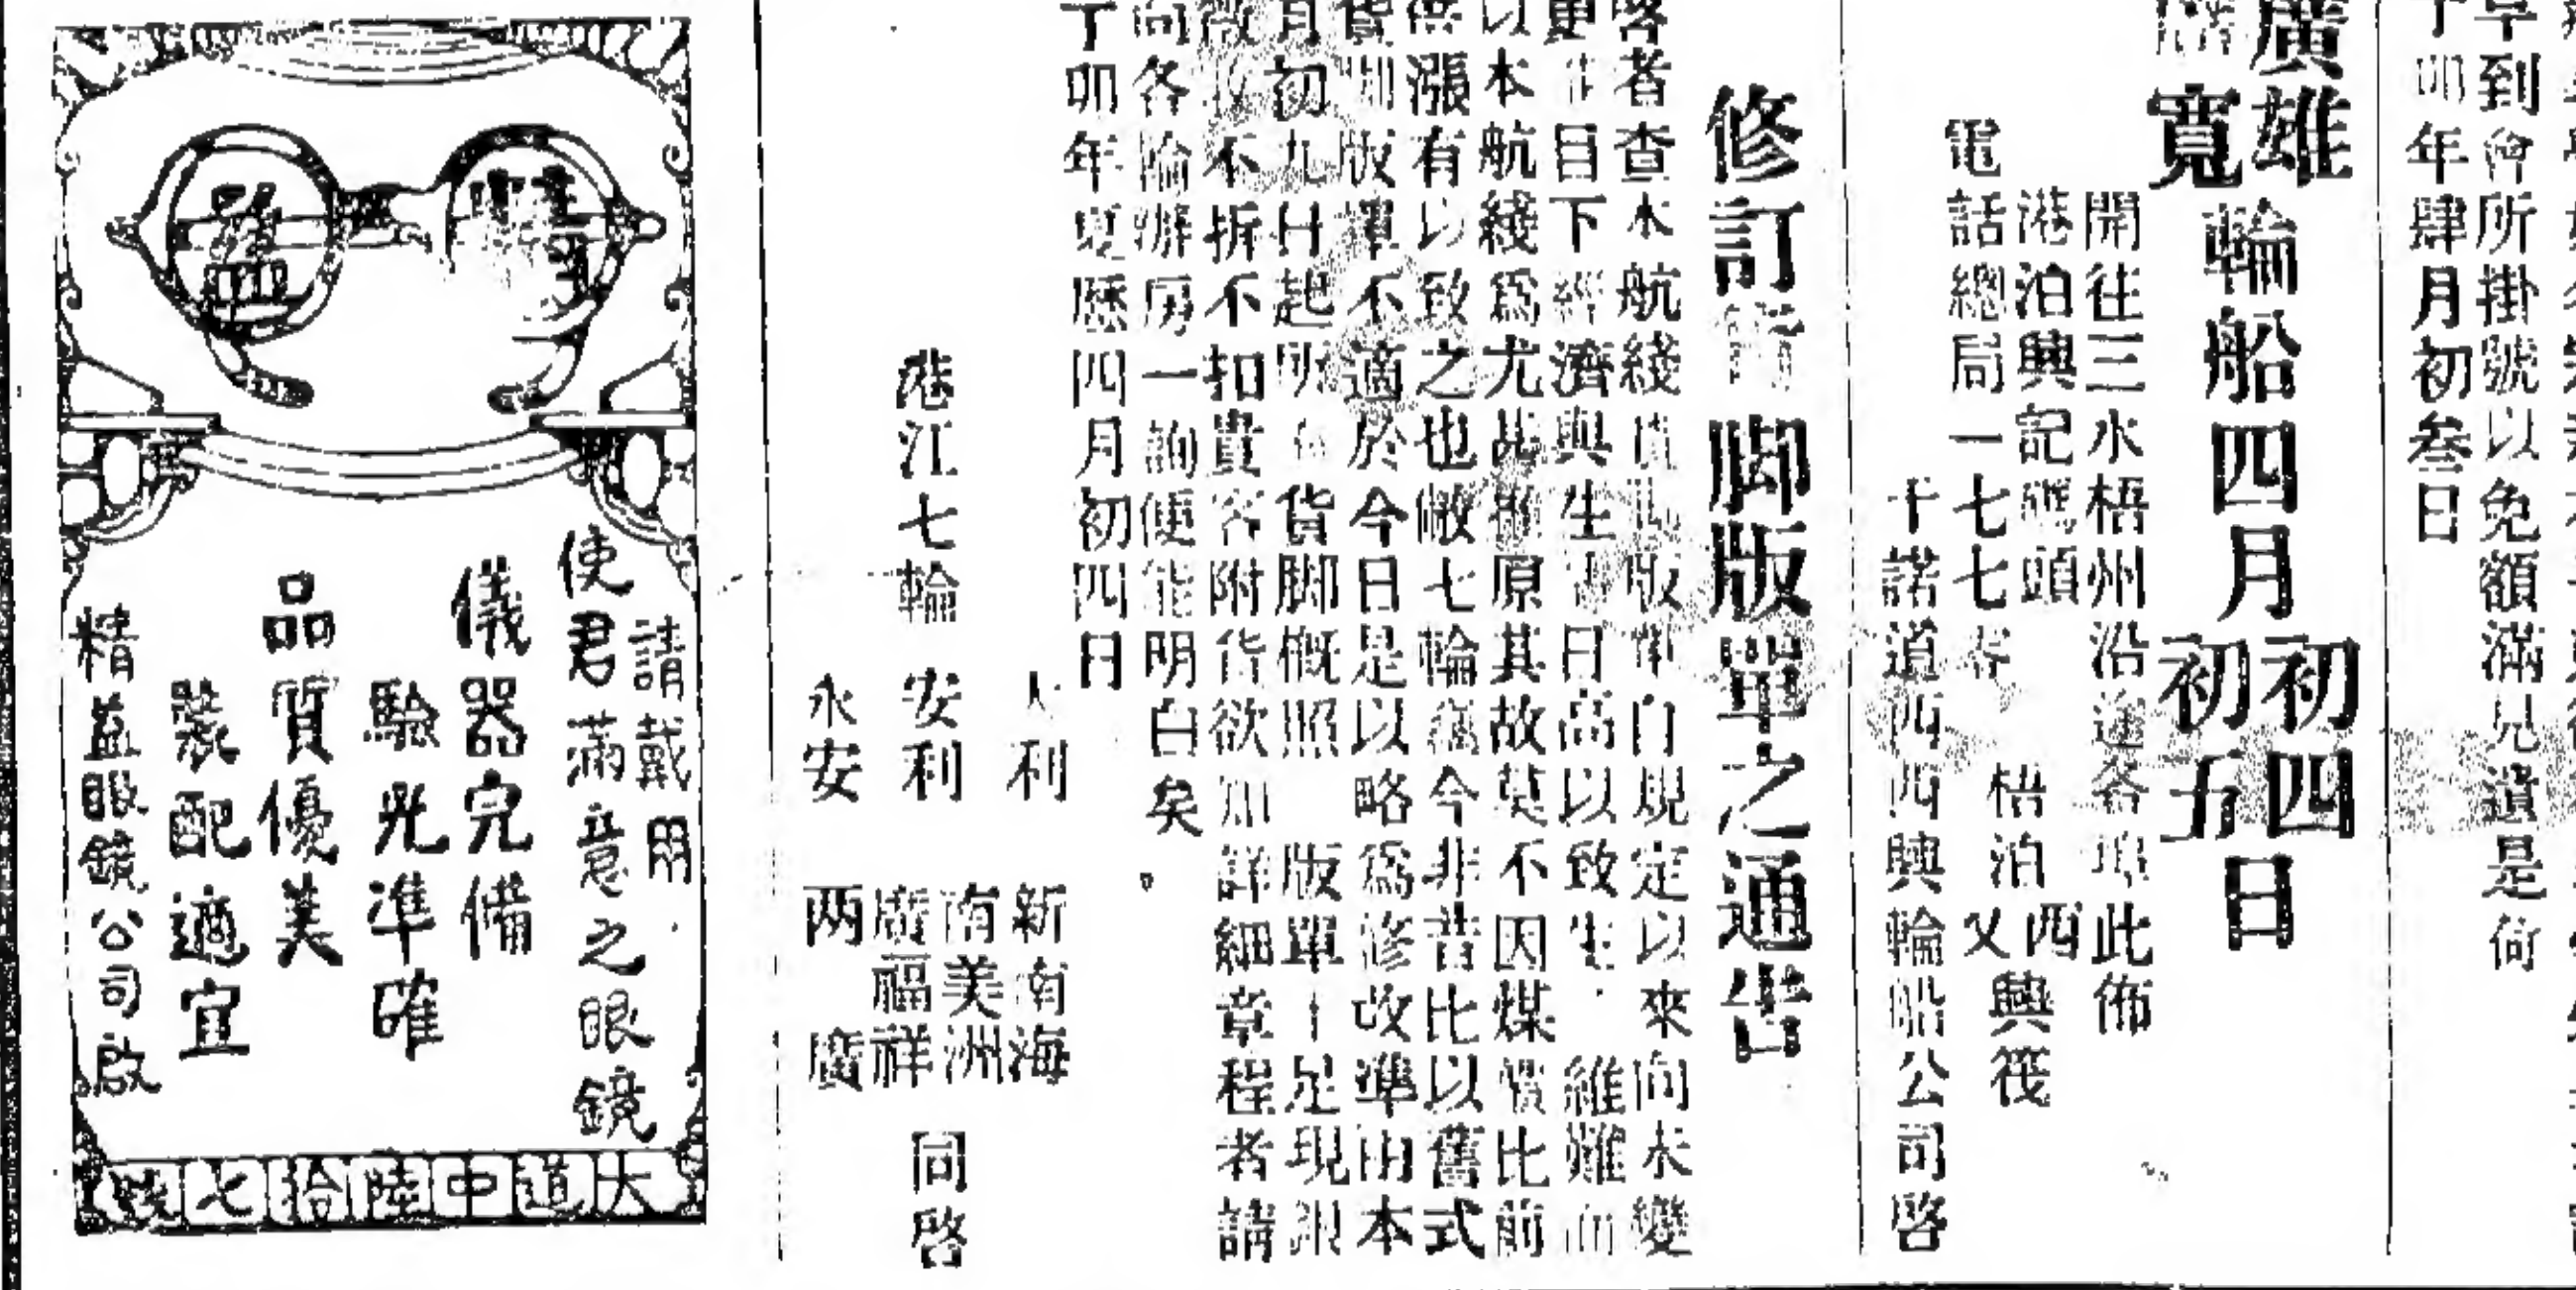 早到會所掛號以免額滿見遺是荷
丁卯年肆月初叁日
廣雄
寬
輪船四月
初四
初五
日
開往三水梧州沿途各埠此佈
港泊興記碼頭
梧泊西興筏
電話總局一七七七零
干諾道西西興輪船公司啓
修訂脚版單之通告
啓者查本航綫貨脚版單自規定以來向未變
更目下經濟與生日高以致生維難而
以本航綫爲尤原其故莫不因煤比前
漲有以致之也敝七輪今非昔比以舊式
貨脚版單不適於今日是以略爲修改準由本
月初九日起所有貨脚概照版單十足現銀
不拆不扣貴客附貨欲知詳細章程者請
向各輪辦房一詢便能明白矣。
丁卯年夏歷四月初四日
港江七輪
利
安利
永安
新南海
南美洲
廣福祥
两廣
同啓
請戴用
使君滿意之眼鏡
儀器完備
驗光準確
品質優美
裝配適宜
精益眼鏡公司啟
大道中陸拾七號